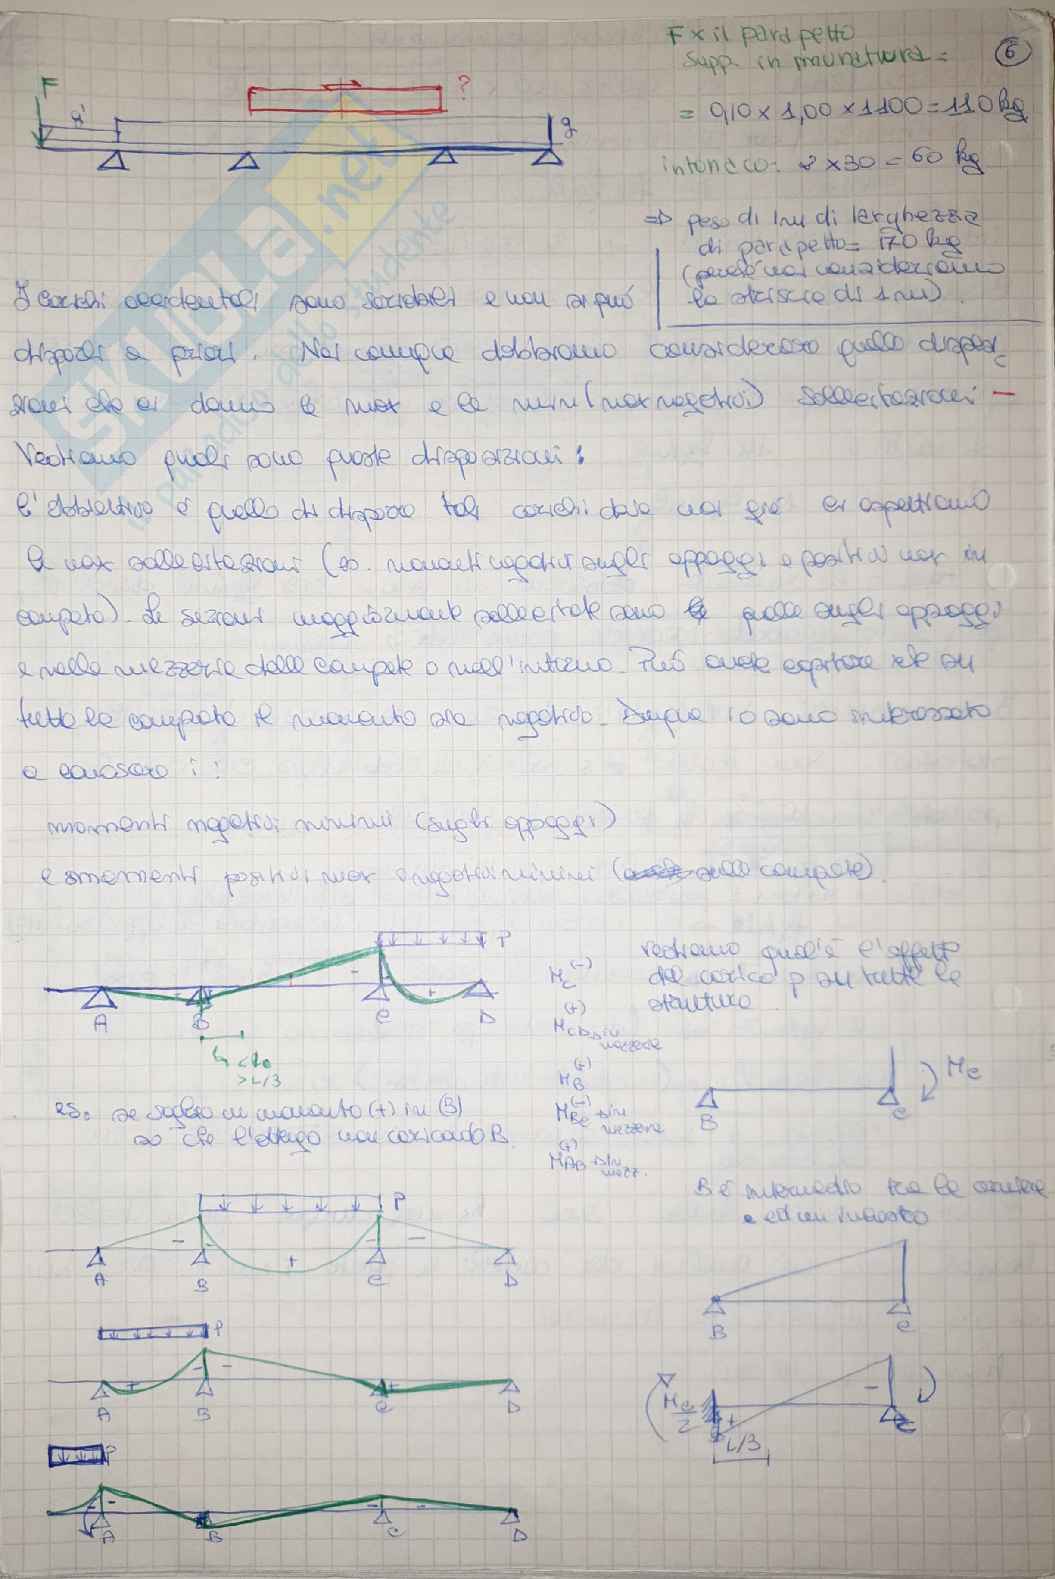 F x il parapetto
Supp. in muratura =
6
= 0,10 x 1,00 x 1100 = 110 kg
intonaco: 2 x 30 = 60 kg
=> peso di 1m di larghezza
di parapetto = 170 kg
(perché noi consideriamo
la striscia di 1 m).
F
g'
?
g
I carichi accidentali sono variabili e non si può
disporli a priori. Noi dobbiamo considerare quelle disposi
zioni che ci danno le max e le min (max negativi) sollecitazioni -
Vediamo quali sono queste disposizioni:
l'obiettivo è quello di disporre tali carichi dove noi già ci aspettiamo
le max sollecitazioni (es. momenti negativi sugli appoggi e positivi max in
campata). Le sezioni maggiormente sollecitate sono quelle sugli appoggi
e nella mezzeria delle campate o nell'intorno. Può anche capitare che su
tutta la campata il momento sia negativo. Dunque io sono interessato
a conoscere i:
momenti negativi minimi (sugli appoggi)
e momenti positivi max e negativi minimi (nelle campate).
P
A
B
C
D
- + 
> L/3
Mc (-)
M CD (+) in mezzeria
MB (+)
MBC (-) in mezzeria
MAB (+) in mezz.
vediamo qual'è l'effetto
del carico p su tutta la
struttura
B
C
Mc
es. se voglio un momento (+) in (B)
so che l'ottengo non caricando B.
P
A
B
C
D
- + -
B è intermedio tra la cerniera
ed un incastro
B
C
P
A
B
C
D
+ - - +
Mc/2
+
-
L/3
C
P
A
B
C
D
- - - -
SKUOLA.net